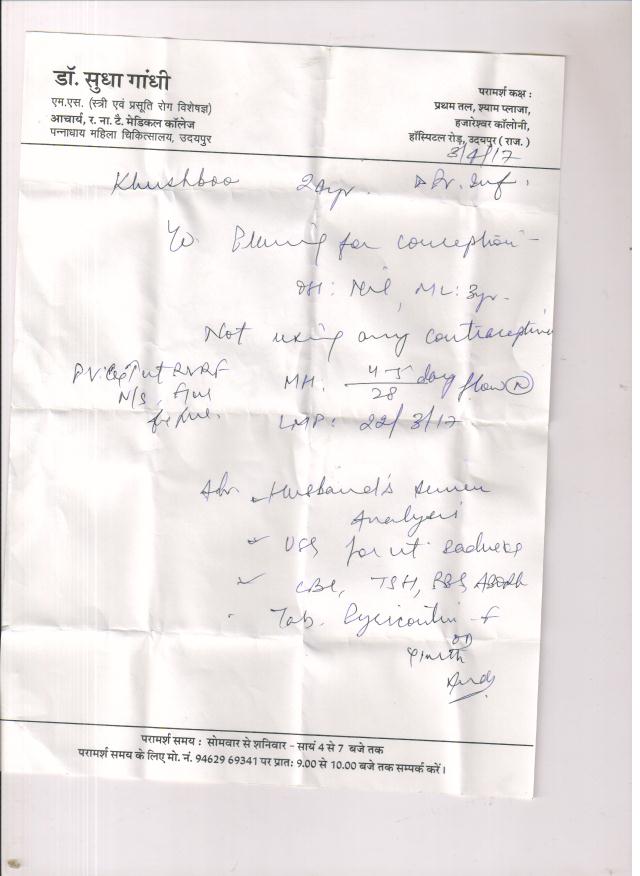 डॉ. सुधा गांधी
एम.एस. (स्त्री एवं प्रसूति रोग विशेषज्ञ)
आचार्य, र. ना. टै. मेडिकल कॉलेज
पन्नाधाय महिला चिकित्सालय, उदयपुर
परामर्श कक्ष :
प्रथम तल, श्याम प्लाजा,
हजारेश्वर कॉलोनी,
हॉस्पिटल रोड़, उदयपुर ( राज. )
3/4/17
Khushboo
for conception -
OH: Nil, ML: 3yr.
Not using any contraceptive
MH: 4-5/28 day flow (N)
LMP: 22/3/17
Adv. Husband's semen
Analysis
USG for ut
CBC, TSH, RBS, ABORh
Tab.
परामर्श समय : सोमवार से शनिवार - सायं 4 से 7 बजे तक
परामर्श समय के लिए मो. नं. 94629 69341 पर प्रात: 9.00 से 10.00 बजे तक सम्पर्क करें।